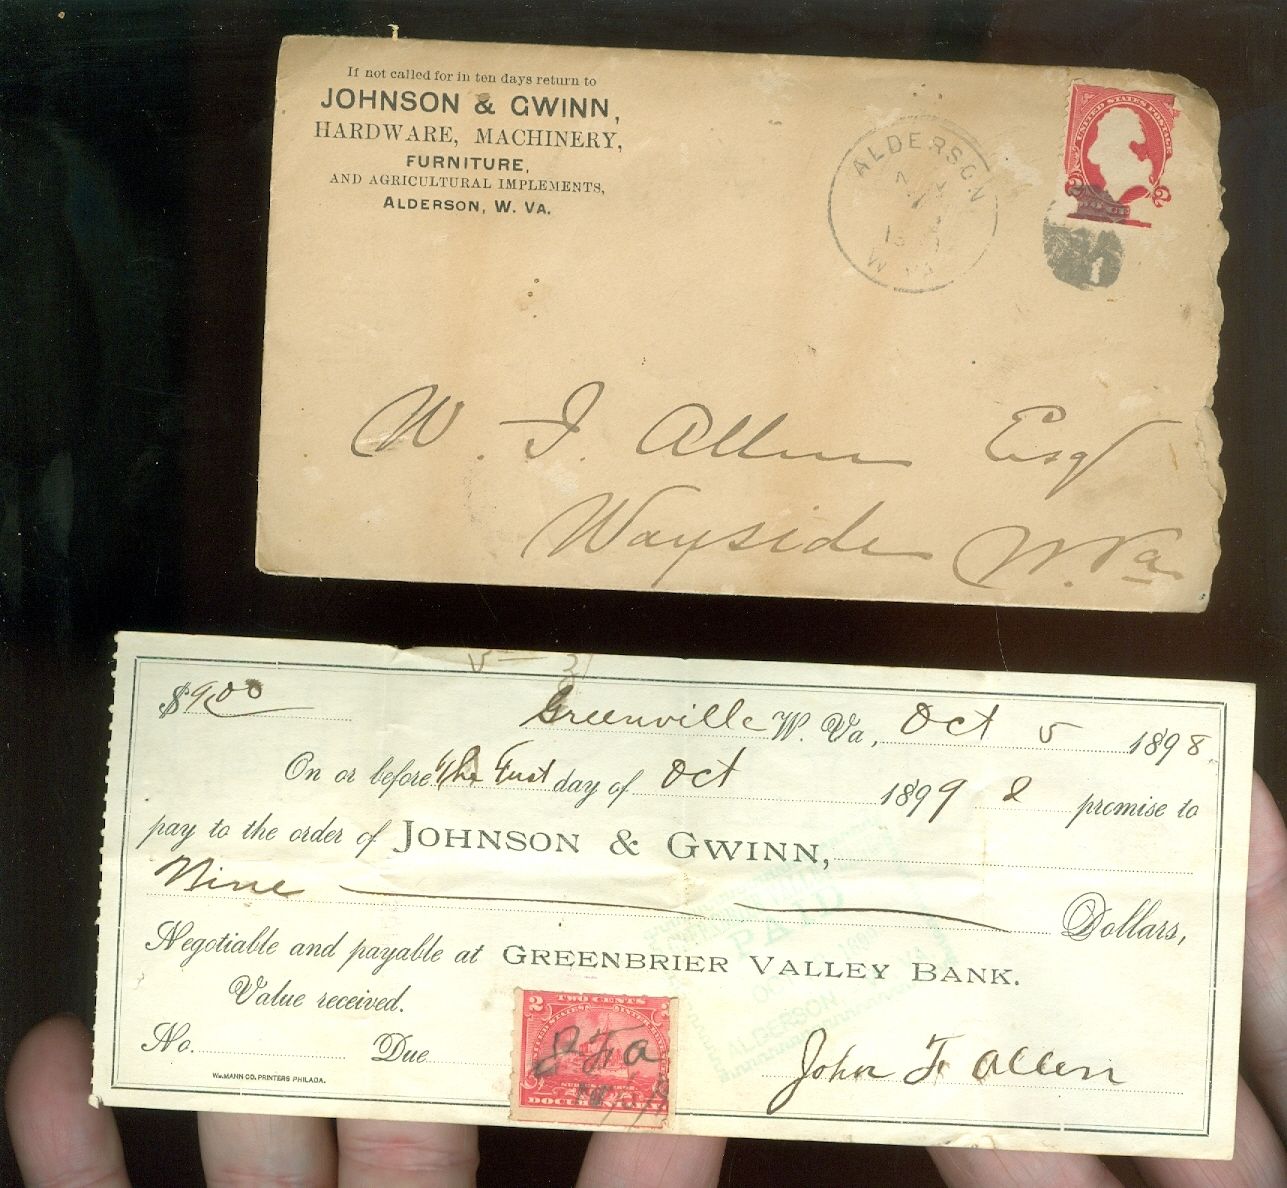 If not called for in ten days return to
JOHNSON & GWINN,
HARDWARE, MACHINERY,
FURNITURE,
AND AGRICULTURAL IMPLEMENTS,
ALDERSON, W. VA.
ALDERSON
W. VA.
UNITED STATES POSTAGE
2 2
W. F. Allen Esq
Wayside W. Va
$9.00 Greenville W. Va., Oct 5 1898
On or before the First day of Oct 1899 I promise to
pay to the order of JOHNSON & GWINN,
Nine Dollars,
Negotiable and payable at GREENBRIER VALLEY BANK.
Value received.
No. Due
PAID
OCT
ALDERSON
2 TWO CENTS
J. F. A
DOCUMENTARY
John F. Allen
WM. MANN CO. PRINTERS PHILADA.